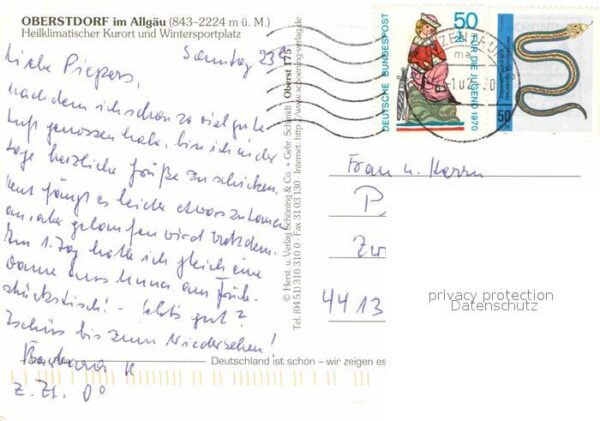 OBERSTDORF im Allgäu (843–2224 m ü. M.)
Heilklimatischer Kurort und Wintersportplatz
Sonntag
Liebe Piepers,
nachdem ich schon so viel gute
Luft genossen habe, bin ich in der
Lage herzliche Grüße zu schicken.
Heut fängt es leider etwas zu
an, aber gelaufen wird trotzdem.
Am 1. Tag hatte ich gleich eine
Dame aus Unna am Früh-
stückstisch! - geht's gut?
Tschüs bis zum Wiedersehen!
Barbara K
z. Zt.
© Herst. u. Verlag Schöning & Co. + Gebr. Schmidt
Oberst 175
Tel. (0451) 310 310 0 · Fax 31 03 130 · Internet: http://www.schoening-verlag.de
Deutschland ist schön – wir zeigen es
DEUTSCHE BUNDESPOST
50
+25
FÜR DIE JUGEND 1970
50
Frau u. Herrn
P
Zw
4413
privacy protection
Datenschutz